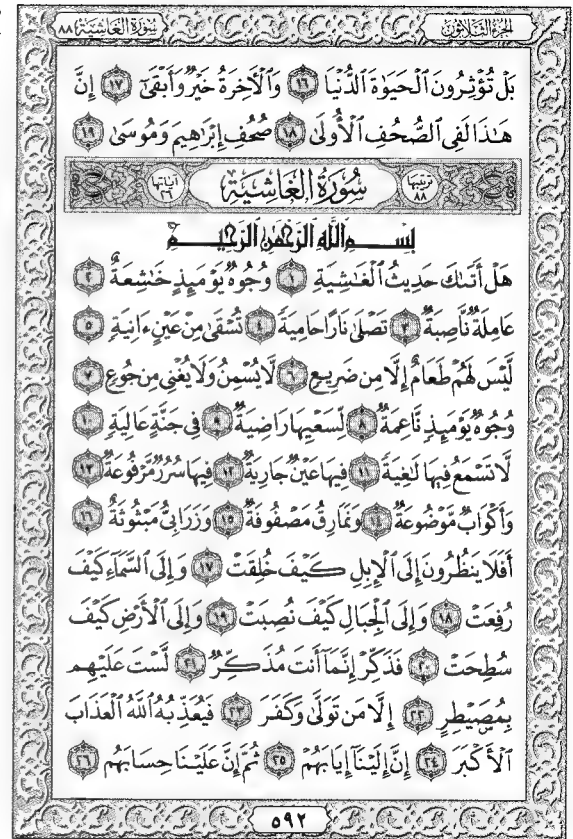 الجزء الثلاثون سورة الغاشية ٨٨
بَلْ تُؤْثِرُونَ ٱلْحَيَوٰةَ ٱلدُّنْيَا ١٦ وَٱلْأَخِرَةُ خَيْرٌ وَأَبْقَىٰٓ ١٧ إِنَّ
هَٰذَا لَفِى ٱلصُّحُفِ ٱلْأُولَىٰ ١٨ صُحُفِ إِبْرَٰهِيمَ وَمُوسَىٰ ١٩
ترتيبها ٨٨ سُورَةُ الغَاشِيَةِ آياتها ٢٦
بِسْمِ ٱللَّهِ ٱلرَّحْمَٰنِ ٱلرَّحِيمِ
هَلْ أَتَىٰكَ حَدِيثُ ٱلْغَٰشِيَةِ ١ وُجُوهٌ يَوْمَئِذٍ خَٰشِعَةٌ ٢
عَامِلَةٌ نَّاصِبَةٌ ٣ تَصْلَىٰ نَارًا حَامِيَةً ٤ تُسْقَىٰ مِنْ عَيْنٍ ءَانِيَةٍ ٥
لَّيْسَ لَهُمْ طَعَامٌ إِلَّا مِن ضَرِيعٍ ٦ لَّا يُسْمِنُ وَلَا يُغْنِى مِن جُوعٍ ٧
وُجُوهٌ يَوْمَئِذٍ نَّاعِمَةٌ ٨ لِّسَعْيِهَا رَاضِيَةٌ ٩ فِى جَنَّةٍ عَالِيَةٍ ١٠
لَّا تَسْمَعُ فِيهَا لَٰغِيَةً ١١ فِيهَا عَيْنٌ جَارِيَةٌ ١٢ فِيهَا سُرُرٌ مَّرْفُوعَةٌ ١٣
وَأَكْوَابٌ مَّوْضُوعَةٌ ١٤ وَنَمَارِقُ مَصْفُوفَةٌ ١٥ وَزَرَابِىُّ مَبْثُوثَةٌ ١٦
أَفَلَا يَنظُرُونَ إِلَى ٱلْإِبِلِ كَيْفَ خُلِقَتْ ١٧ وَإِلَى ٱلسَّمَآءِ كَيْفَ
رُفِعَتْ ١٨ وَإِلَى ٱلْجِبَالِ كَيْفَ نُصِبَتْ ١٩ وَإِلَى ٱلْأَرْضِ كَيْفَ
سُطِحَتْ ٢٠ فَذَكِّرْ إِنَّمَآ أَنتَ مُذَكِّرٌ ٢١ لَّسْتَ عَلَيْهِم
بِمُصَيْطِرٍ ٢٢ إِلَّا مَن تَوَلَّىٰ وَكَفَرَ ٢٣ فَيُعَذِّبُهُ ٱللَّهُ ٱلْعَذَابَ
ٱلْأَكْبَرَ ٢٤ إِنَّ إِلَيْنَآ إِيَابَهُمْ ٢٥ ثُمَّ إِنَّ عَلَيْنَا حِسَابَهُم ٢٦
٥٩٢